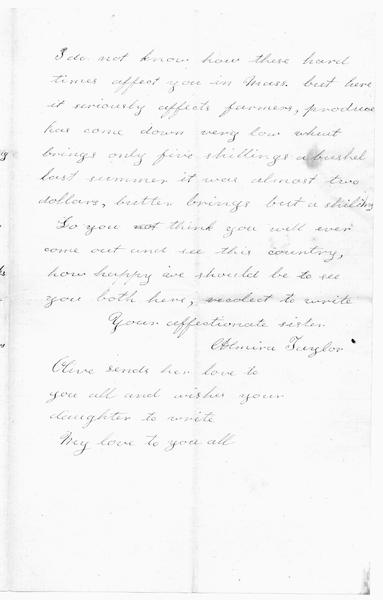 I do not know how these hard
times affect you in Mass. but here
it seriously affects farmers, produce
has come down very low wheat
brings only five shillings a bushel
last summer it was almost two
dollars, butter brings but a shilling
Do you not think you will ever
come out and see this country,
how happy we should be to see
you both here, recolect to write
Your affectionate sister
Almira Taylor
Olive sends her love to
you all and wishes your
daughter to write
My love to you all